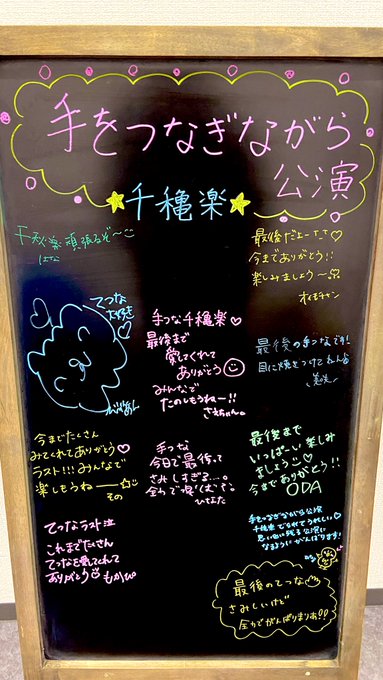 手をつなぎながら
公演
千穐楽
千秋楽頑張るぞ〜
はな
最後だよーーー♡
今までありがとう!!
楽しみましょうー
オイモチャン
てつな
大好き
♡
手つな千穐楽♡
最後まで
愛してくれて
ありがとう
みんなで
たのしもうねー!!
さえちゃん。
最後の手つなです!
目に焼きつけてねん
美咲
今までたくさん
みてくれてありがとう♡
ラスト!!!みんなで
楽しもうねー
その
手つな
今日で最後って
さみしすぎる...。
ひなた
最後まで
いっぱい楽しみ
ましょう
今までありがとう!!
ODA
てつなラスト泣
これまでたくさん
てつなを愛してくれて
ありがとう
もかぴ
手をつなぎながら公演
千穐楽でれてうれしい♡
思い出に残る公演に
なるようにがんばります!
最後のてつな
さみしいけど
全力でがんばりまりあ!!